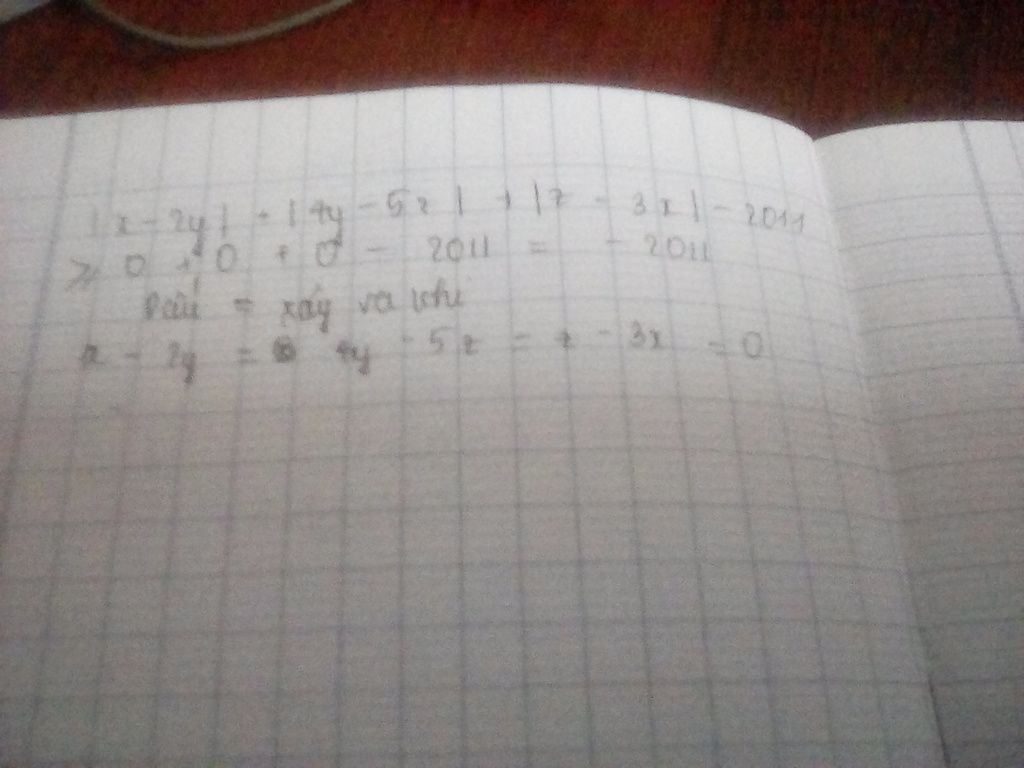 |x - 2y| + |4y - 5z| + |z - 3x| - 2011
≥ 0 + 0 + 0 - 2011 = - 2011
Dấu = xảy ra khi
x - 2y = 4y - 5z = z - 3x = 0